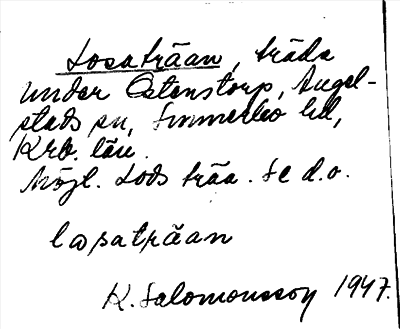 Losaträan, träda
under Östenstorp, Angel-
stads sn, Sunnerbo hd,
Krb. län.
Möjl. Lods träa. Se d.o.
losaträan
K. Salomonsson 1947.